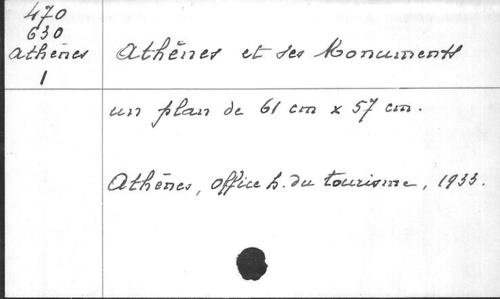 470
630
Athènes
1
Athènes et ses Monuments
un plan de 61 cm x 57 cm.
Athènes, Office h. du tourisme, 1933.